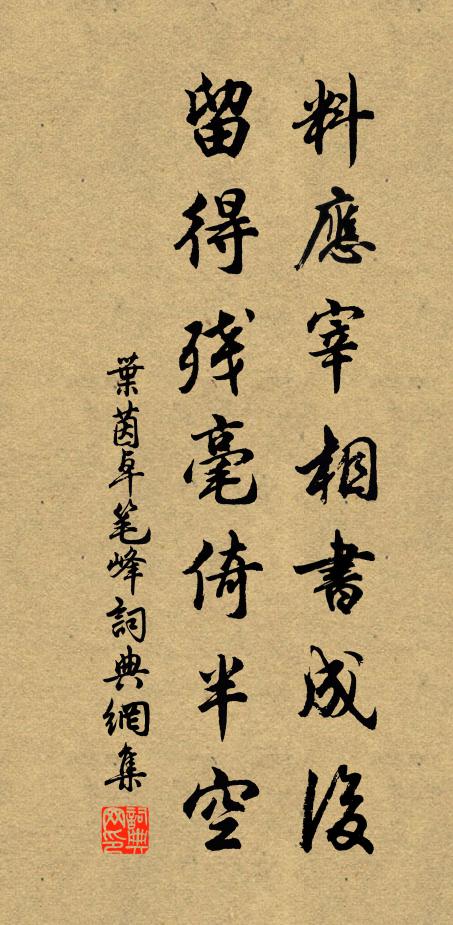 料應宰相書成後
留得残毫倚半空
葉茵卓笔峰詞典網集
詞典网印